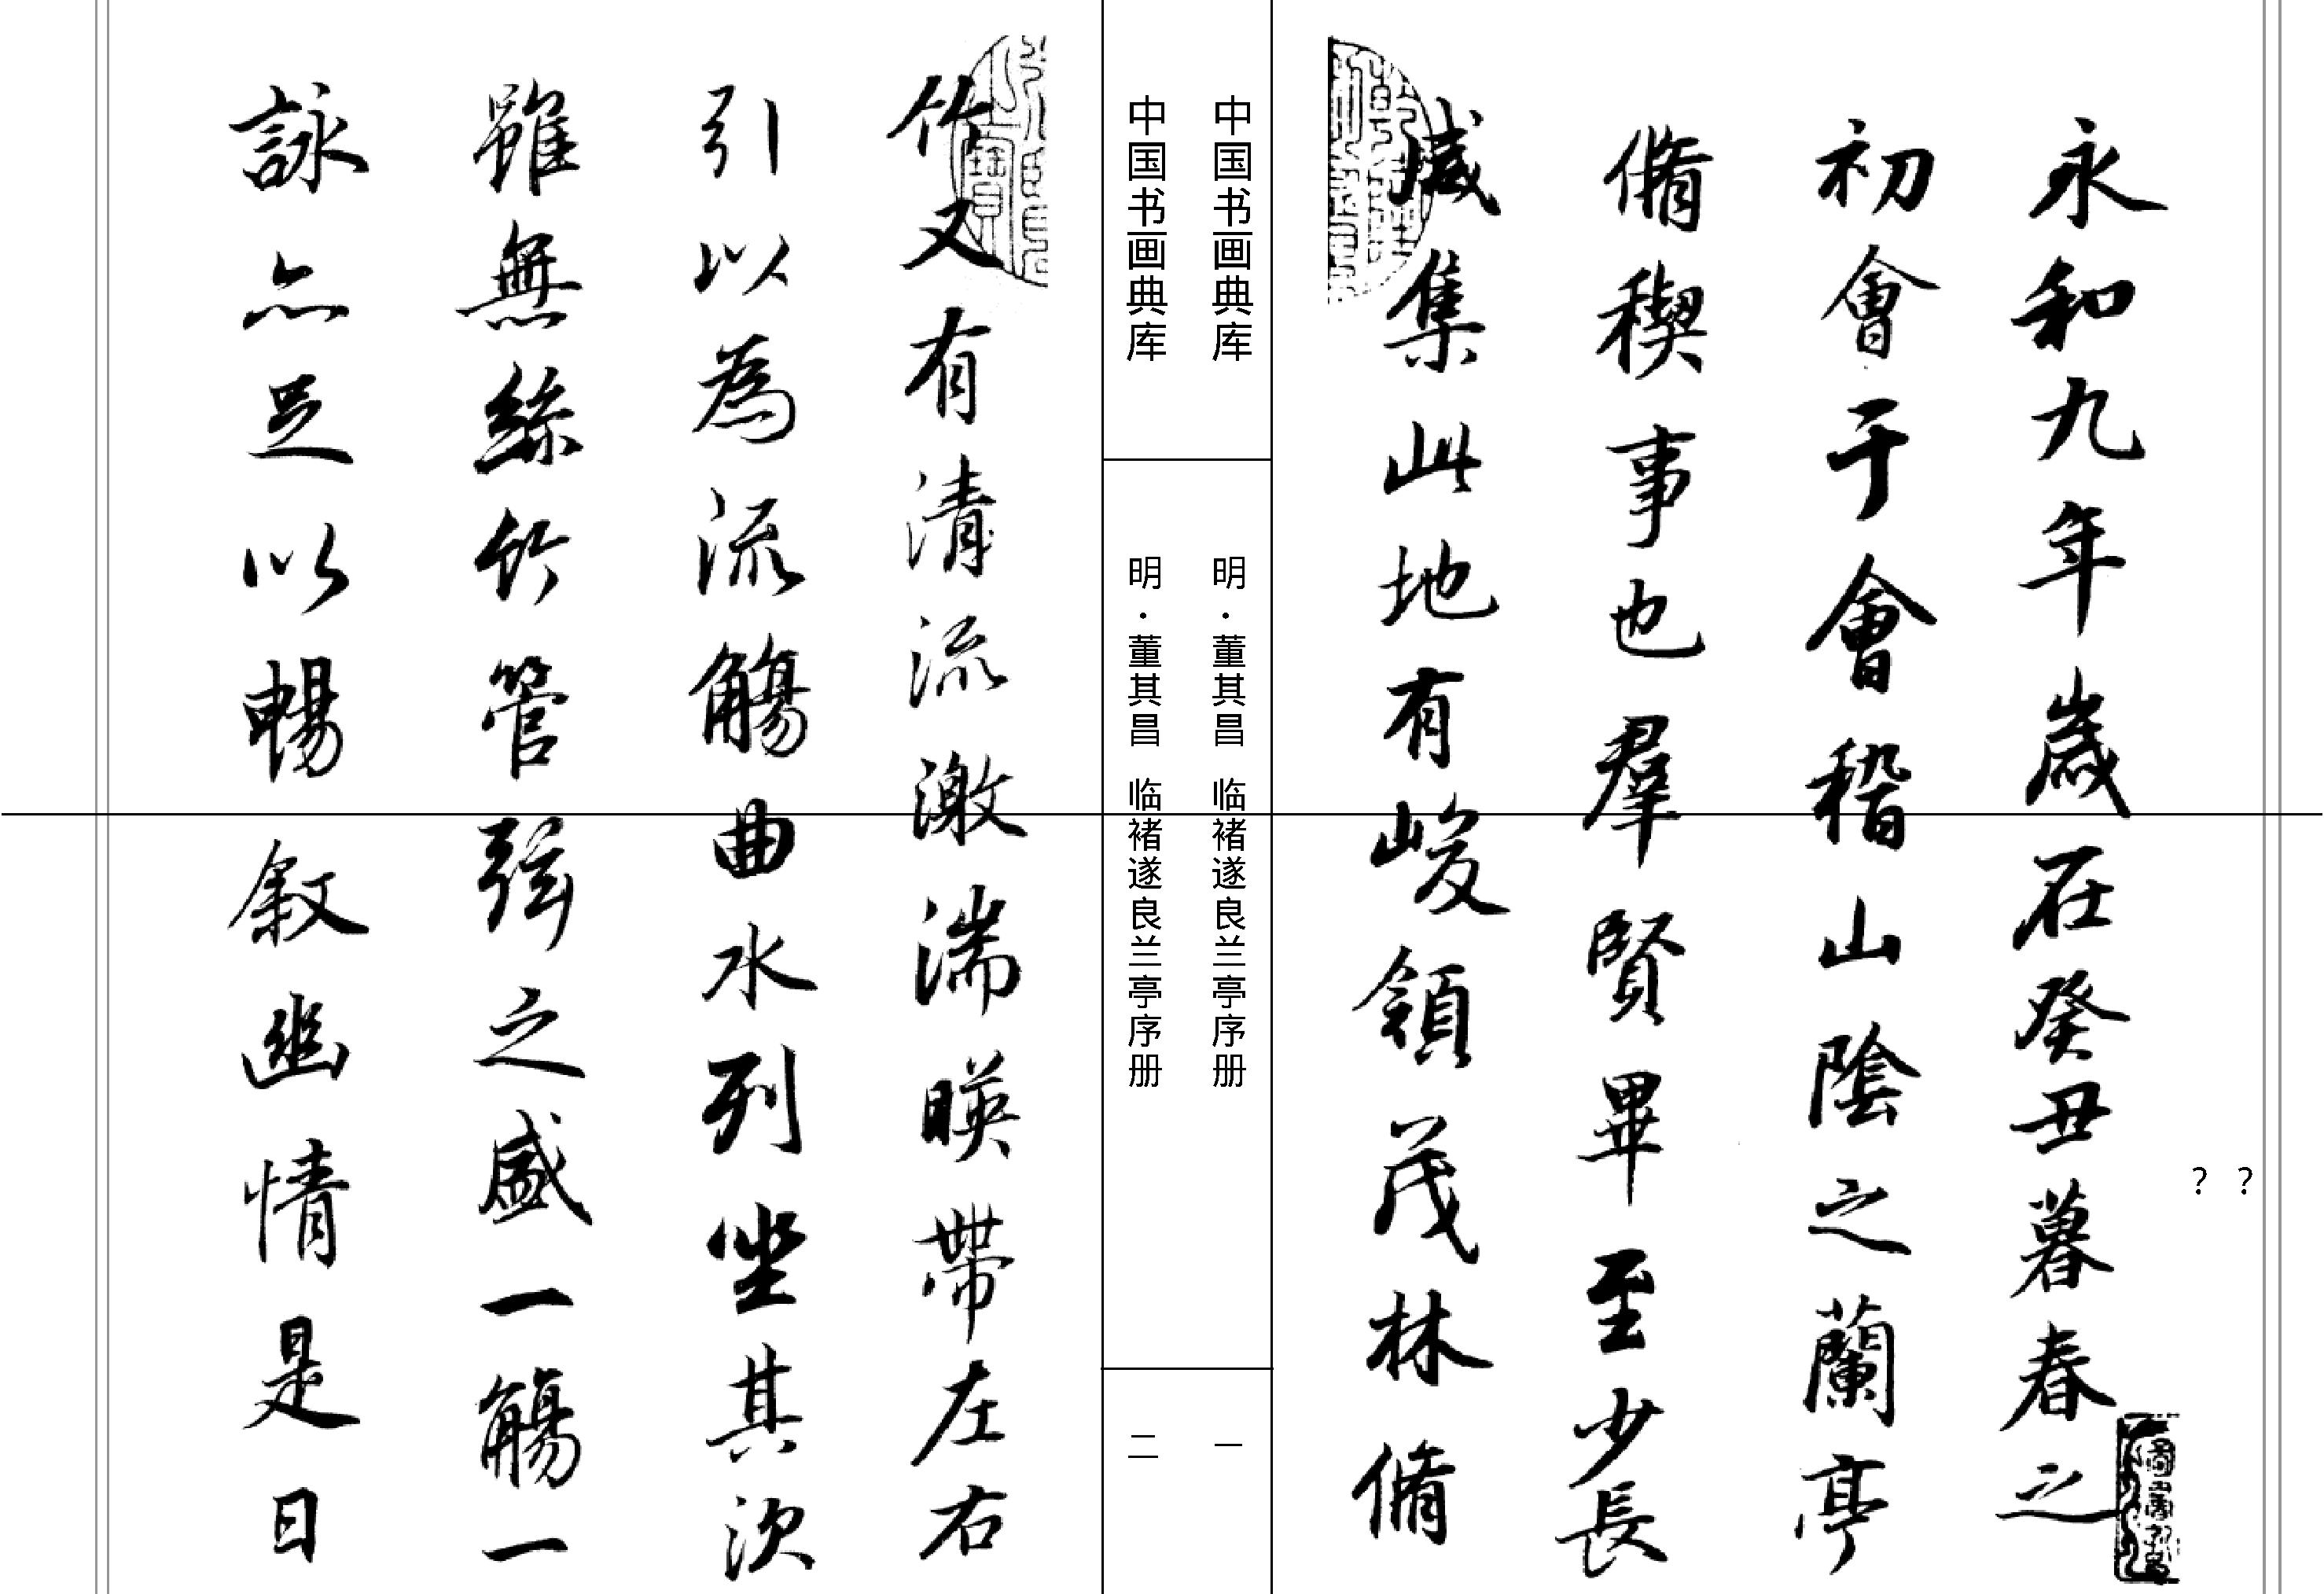 永和九年歲在癸丑暮春之
初會于會稽山陰之蘭亭
脩稧事也羣賢畢至少長
咸集此地有峻領茂林脩
中国书画典库
明·董其昌 临褚遂良兰亭序册
一
中国书画典库
明·董其昌 临褚遂良兰亭序册
二
竹又有清流激湍暎帶左右
引以為流觴曲水列坐其次
雖無絲竹管弦之盛一觴一
詠亦足以暢敘幽情是日
? ?